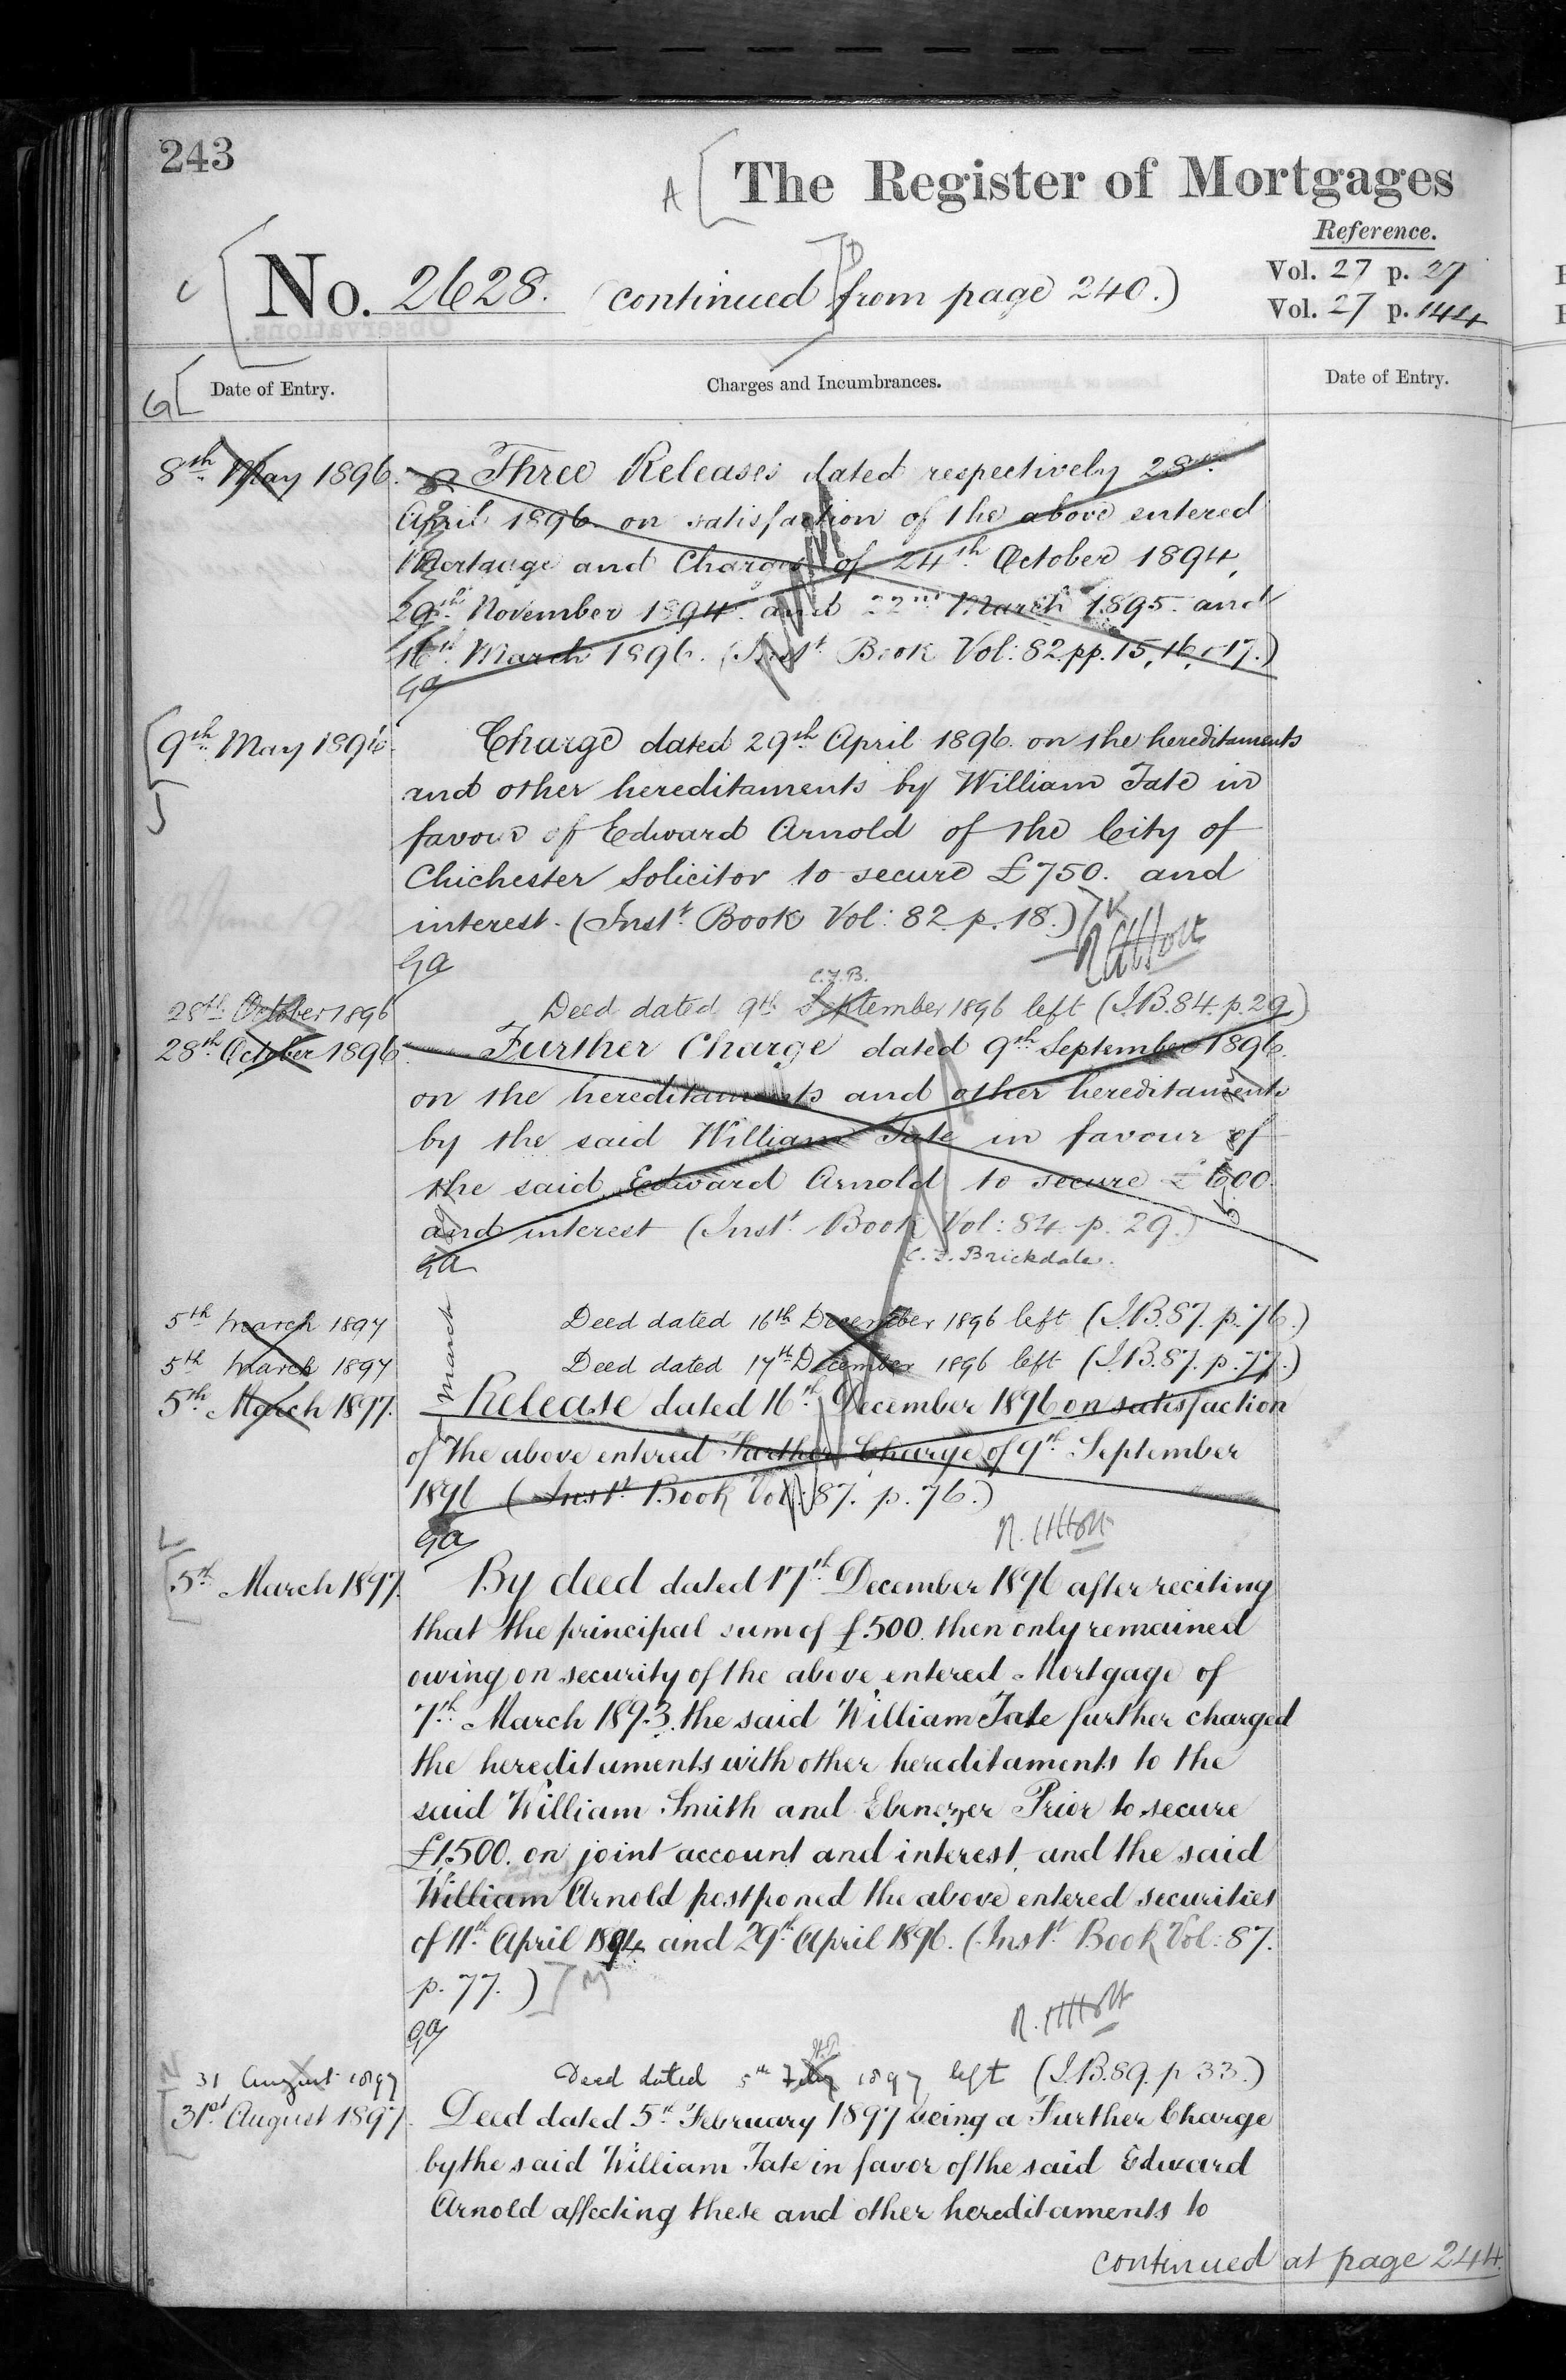 243
A [ The Register of Mortgages
Reference.
No. 2628. (continued from page 240.)
Vol. 27 p. 27
Vol. 27 p. 144
G [ Date of Entry.
Charges and Incumbrances.
Date of Entry.
8th May 1896. Three Releases dated respectively 28th
April 1896 on satisfaction of the above entered
Mortgage and Charges of 24th October 1894,
29th November 1894 and 22nd March 1895 and
16th March 1896. (Inst. Book Vol: 82 pp. 15, 16, & 17.)
GA
9th May 1896. Charge dated 29th April 1896 on the hereditaments
and other hereditaments by William Tate in
favour of Edward Arnold of the City of
Chichester Solicitor to secure £750. and
interest. (Inst. Book Vol: 82 p. 18.) K
GA
C.F.B.
28th October 1896 Deed dated 9th September 1896 left (I.B. 84. p. 29)
28th October 1896. Further Charge dated 9th September 1896.
on the hereditaments and other hereditaments
by the said William Tate in favour of
the said Edward Arnold to secure £600.
and interest (Inst. Book Vol: 84. p. 29.)
GA
C. F. Brickdale.
5th March 1897 Deed dated 16th December 1896 left (I.B. 87. p. 76.)
5th March 1897 Deed dated 17th December 1896 left (I.B. 87. p. 77.)
5th March 1897. Release dated 16th December 1896 on satisfaction
of the above entered Further Charge of 9th September
1896 (Inst. Book Vol: 87. p. 76.)
GA
L
5th March 1897. By deed dated 17th December 1896 after reciting
that the principal sum of £500. then only remained
owing on security of the above entered Mortgage of
7th March 1893. the said William Tate further charged
the hereditaments with other hereditaments to the
said William Smith and Ebenezer Prior to secure
£1500. on joint account and interest and the said
William Arnold postponed the above entered securities
of 11th April 1894 and 29th April 1896. (Inst. Book Vol: 87.
p. 77.) ] M
GA
31 August 1897 Deed dated 5th Feby 1897 left (I.B. 89. p 33.)
31st August 1897. Deed dated 5th February 1897 being a Further Charge
by the said William Tate in favor of the said Edward
Arnold affecting these and other hereditaments to
continued at page 244.